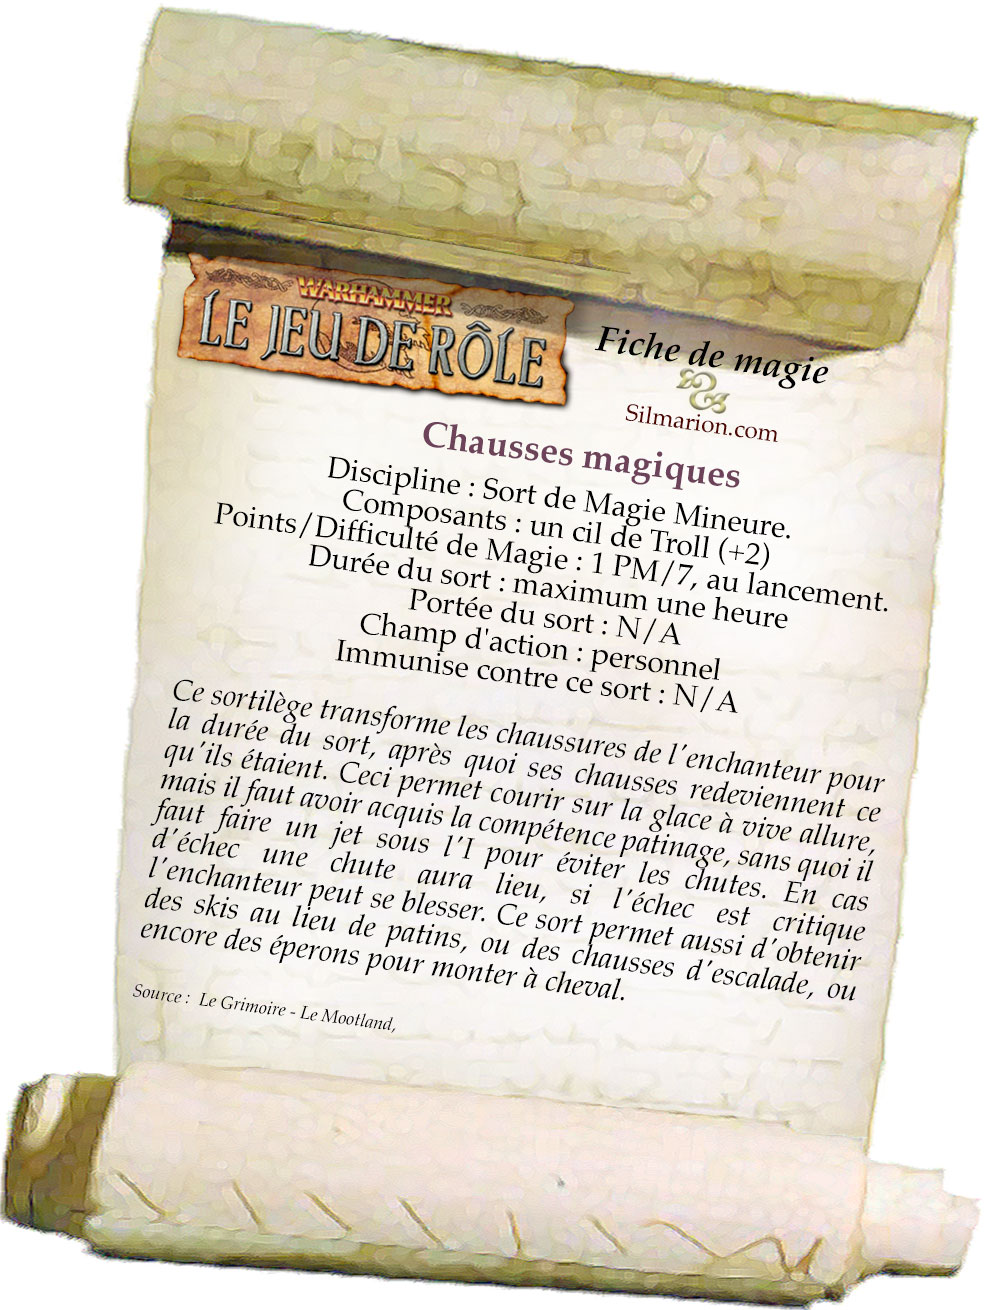 WARHAMMER
LE JEU DE RÔLE
Fiche de magie
Silmarion.com
Chausses magiques
Discipline : Sort de Magie Mineure.
Composants : un cil de Troll (+2)
Points/Difficulté de Magie : 1 PM/7, au lancement.
Durée du sort : maximum une heure
Portée du sort : N/A
Champ d'action : personnel
Immunise contre ce sort : N/A
Ce sortilège transforme les chaussures de l'enchanteur pour
la durée du sort, après quoi ses chausses redeviennent ce
qu'ils étaient. Ceci permet courir sur la glace à vive allure,
mais il faut avoir acquis la compétence patinage, sans quoi il
faut faire un jet sous l'I pour éviter les chutes. En cas
d'échec une chute aura lieu, si l'échec est critique
l'enchanteur peut se blesser. Ce sort permet aussi d'obtenir
des skis au lieu de patins, ou des chausses d'escalade, ou
encore des éperons pour monter à cheval.
Source : Le Grimoire - Le Mootland,